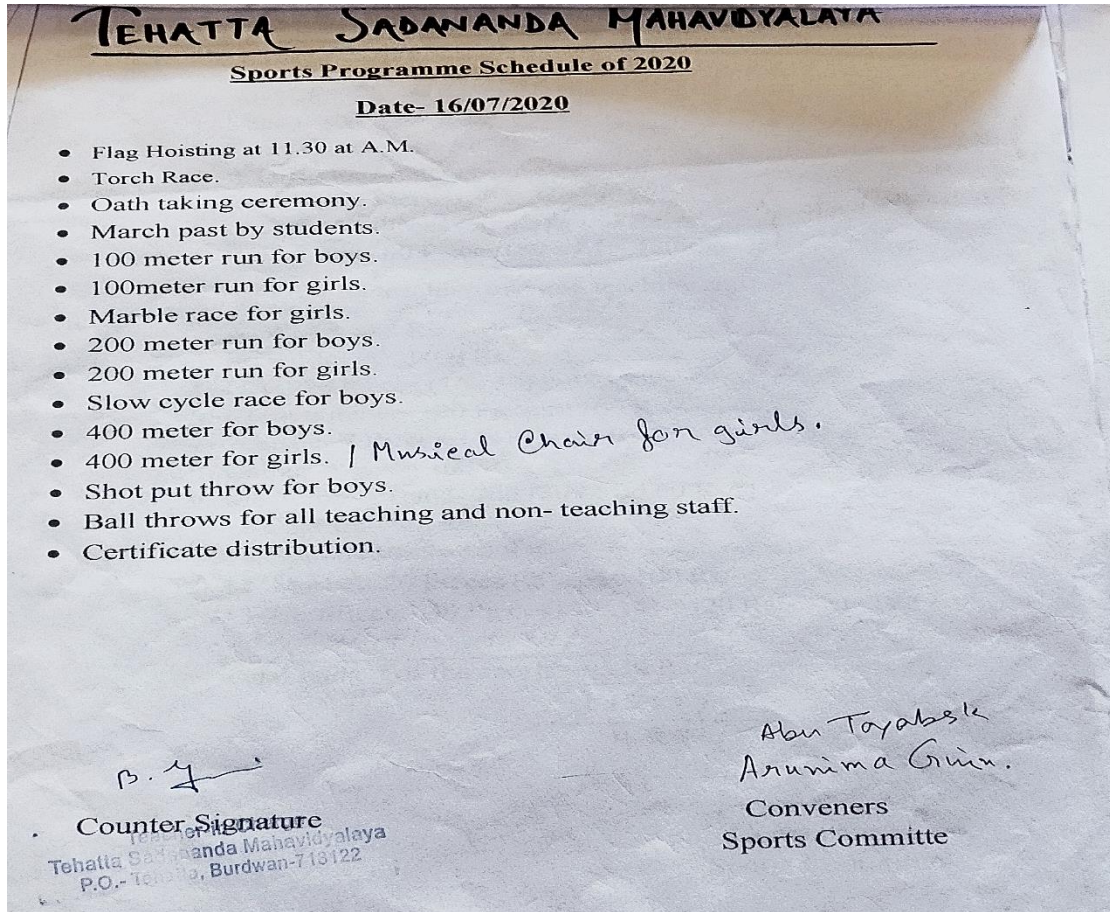 TEHATTA SADANANDA MAHAVIDYALAYA
Sports Programme Schedule of 2020
Date- 16/07/2020
• Flag Hoisting at 11.30 at A.M.
• Torch Race.
• Oath taking ceremony.
• March past by students.
• 100 meter run for boys.
• 100meter run for girls.
• Marble race for girls.
• 200 meter run for boys.
• 200 meter run for girls.
• Slow cycle race for boys.
• 400 meter for boys.
• 400 meter for girls. / Musical Chair for girls.
• Shot put throw for boys.
• Ball throws for all teaching and non- teaching staff.
• Certificate distribution.
Abu Tayabsk
Arunima Guin.
B.
Conveners
Counter Signature
Sports Committe
Tehatta Sadananda Mahavidyalaya
P.O.- Tehatta, Burdwan-713122